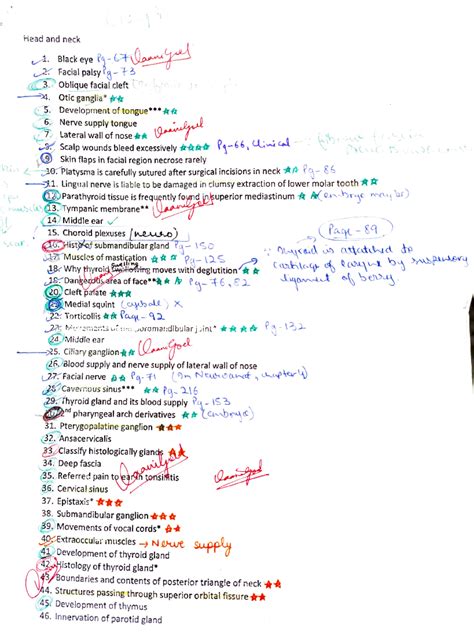 Head and neck
1. Black eye Pg-67
2. Facial palsy Pg-73
3. Oblique facial cleft
4. Otic ganglia* ☆☆
5. Development of tongue*** ☆☆
6. Nerve supply tongue
7. Lateral wall of nose ☆☆
8. Scalp wounds bleed excessively ☆☆☆ Pg-66, Clinical
9. Skin flaps in facial region necrose rarely
10. Platysma is carefully sutured after surgical incisions in neck ☆☆ Pg-86
11. Lingual nerve is liable to be damaged in clumsy extraction of lower molar tooth ☆☆
12. Parathyroid tissue is frequently found in superior mediastinum ☆
13. Tympanic membrane**
14. Middle ear
15. Choroid plexuses (neuro)
Page-89
16. of submandibular gland Pg-150
17. Muscles of mastication ☆☆ Pg-125
Thyroid is attached to
18. Why thyroid swelling moves with deglutition ☆☆
cartilage of larynx by suspensory
19. Dangerous area of face** ☆ Pg-76,82
ligament of berry
20. Cleft palate ☆☆
21. Medial squint x
22. Torticollis ☆ Page-92
23. Movements of temporomandibular joint* ☆☆☆☆ Pg-132
24. Middle ear
25. Ciliary ganglion ☆☆
26. Blood supply and nerve supply of lateral wall of nose
27. Facial nerve ☆ Pg-71
28. Cavernous sinus*** ☆☆ Pg-216
29. Thyroid gland and its blood supply Pg-153
30. 2nd pharyngeal arch derivatives ☆☆ (embryo)
31. Pterygopalatine ganglion ☆☆☆
32. Ansacervicalis
33. Classify histologically glands ☆☆
34. Deep fascia
35. Referred pain to earth tonsinitis
36. Cervical sinus
37. Epistaxis* ☆☆☆
38. Submandibular ganglion ☆☆☆
39. Movements of vocal cords* ☆☆
40. Extraoccular muscles → Nerve supply
41. Development of thyroid gland
42. Histology of thyroid gland*
43. Boundaries and contents of posterior triangle of neck ☆☆
44. Structures passing through superior orbital fissure ☆☆
45. Development of thymus
46. Innervation of parotid gland